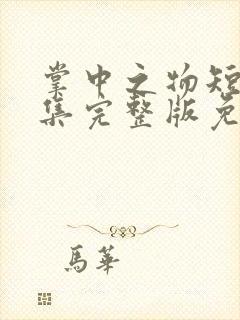 掌中之物短
集完整版免
馬華